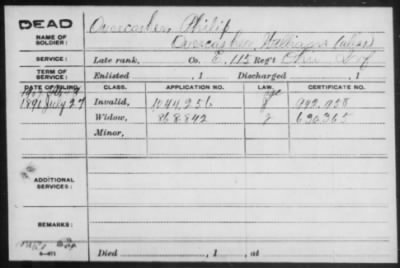 DEAD
NAME OF SOLDIER: Overcasher Philip
Overcasher, William (alias)
SERVICE: Late rank, Co. E, 115 Reg't Ohio Inf
TERM OF SERVICE: Enlisted , 1 Discharged , 1
DATE OF FILING. CLASS. APPLICATION NO. LAW. CERTIFICATE NO.
Invalid, 1044,256 942,958
1891 July 27 Widow, 868,842 690,365
Minor,
ADDITIONAL SERVICES:
REMARKS:
6-471 Died , 1 , at